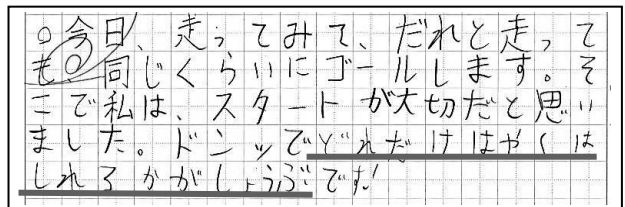 ○今日、走ってみて、だれと走って
も同じくらいにゴールします。そ
こで私は、スタートが大切だと思い
ました。ドンッでどれだけはやくは
しれるかがしょうぶです!